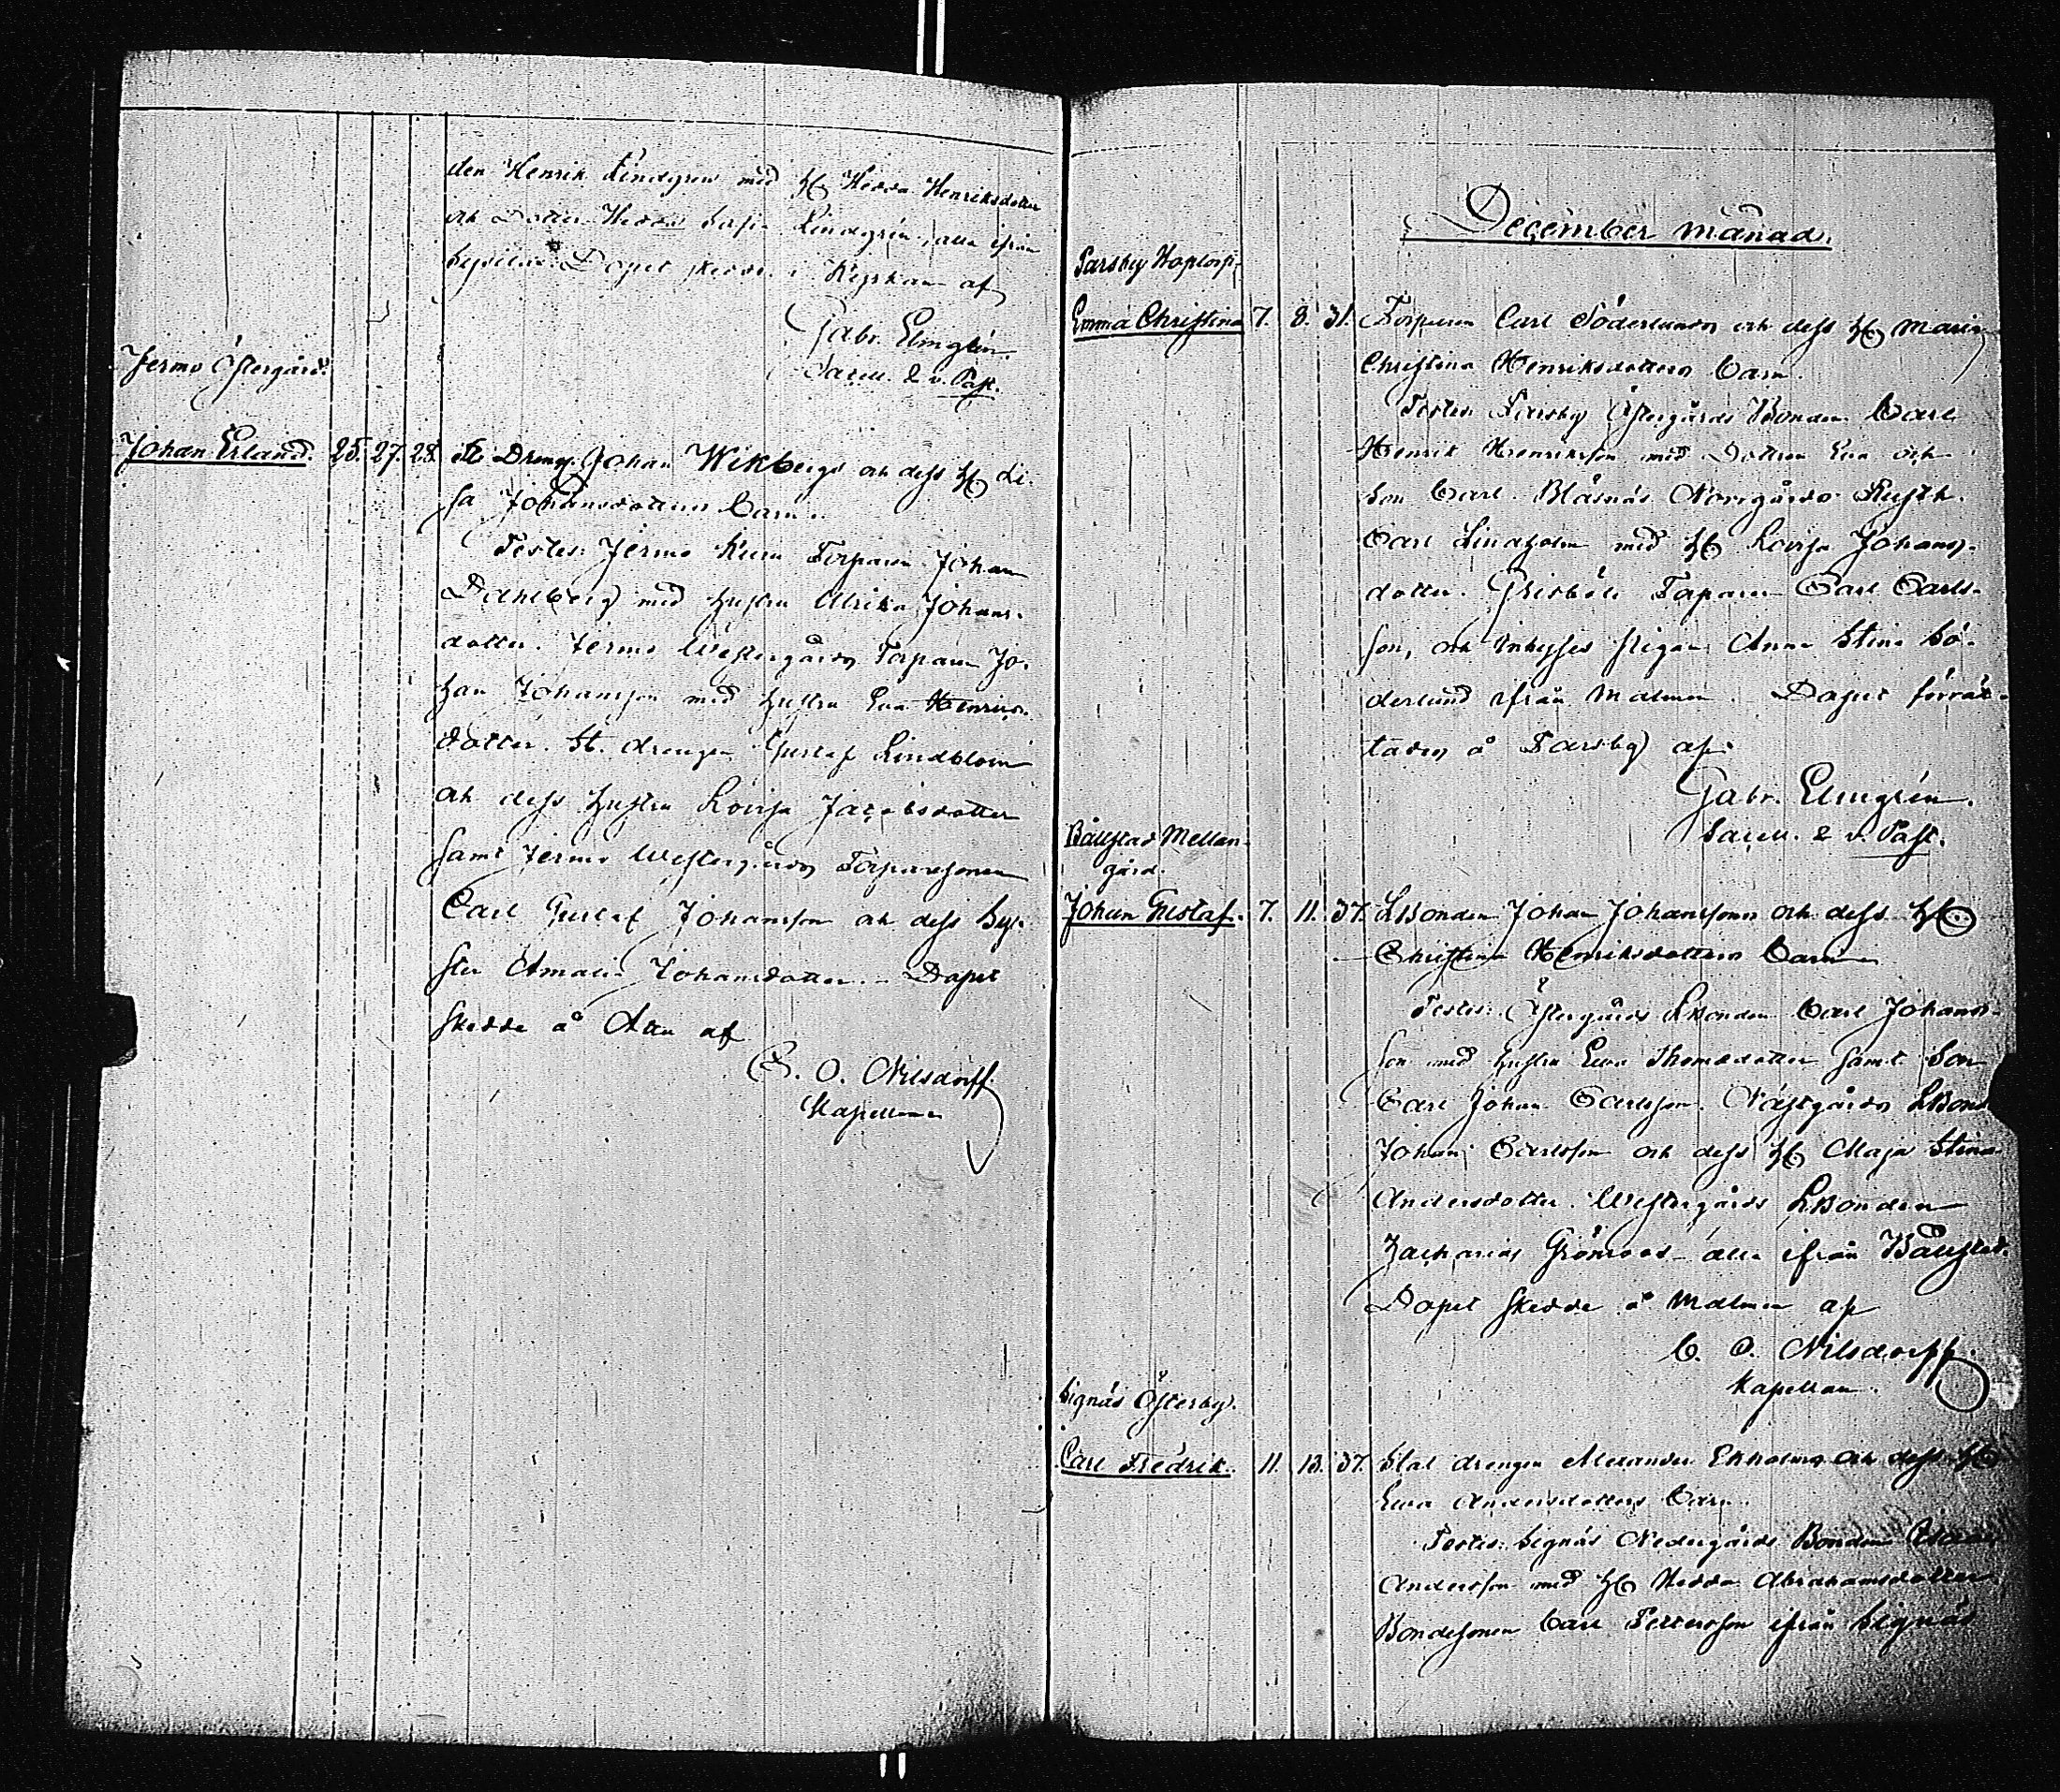 den Henrik Lindgren med H Hedda Henriksdotter
och Dotter Hedda Sofia Lindgrén, alla ifrån
Dopet skedde i Kyrkan af
Gabr. Elmgrén.
Sacell. & v. Past.
Jermo Östergård.
Johan Erland. 25. 27. 28. St. Dreng. Johan Wikbergs och dess H Li-
sa Johansdotters Barn.
Testes: Jermo Torparen Johan
Dahlberg med hustru Ulrika Johans-
dotter. Jermo Westergårds Torparen Jo-
han Johansson med hustru Eva Henriks-
dotter. St. drengen Gustaf Lindblom
och dess hustru Lovisa Jacobsdotter
samt Jermo Westergårds Torparesonen
Carl Gustaf Johansson och dess Sys-
ter Amalia Johansdotter. - Dopet
skedde å af
C. O. Nilsdorff.
Kapellan
December månad.
Parsby Koptorp
Emma Christina 7. 8. 31. Torparen Carl Söderlunds och dess H Maria
Christina Henriksdotters Barn.
Testes: Parsby Östergårds Bonden Carl
Henrik Henriksson med Dottren Eva och
Son Carl. Blåsnäs Norrgårds Rusth.
Carl Lindholm med H Lovisa Johans-
dotter. Grisböle Torparen Carl Carls-
son, och Inhyses pigan Anna Stina Sö-
derlund ifrån Malmen. Dopet förrät-
tades å Parsby af
Gabr. Elmgrén.
Sacell. & v. Past.
Bållstad Mellan-
gård.
Johan Gustaf. 7. 11. 37. LBonden Johan Johanssons och dess H
Christina Henriksdotters Barn
Testes: Östergårds LBonden Carl Johans-
son med hustru Eva Thomasdotter samt Son
Carl Johan Carlsson. Nästgårds LBond.
Johan Carlsson och dess H Maja Stina
Andersdotter. Westergårds LBonden
Zacharias Grönroos alla ifrån Bållstad.
Dopet skedde å Malmen af
C. O. Nilsdorff.
Kapellan.
Signäs Österby.
Carl Fredrik. 11. 13. 37. Stat drengen Alexander Ekholms och dess H
Eva Andersdotters Barn.
Testes: Signäs Nedergårds Bonden
Andersson med H Hedda Abrahamsdotter
Bondesonen Carl Pettersson ifrån Signäs